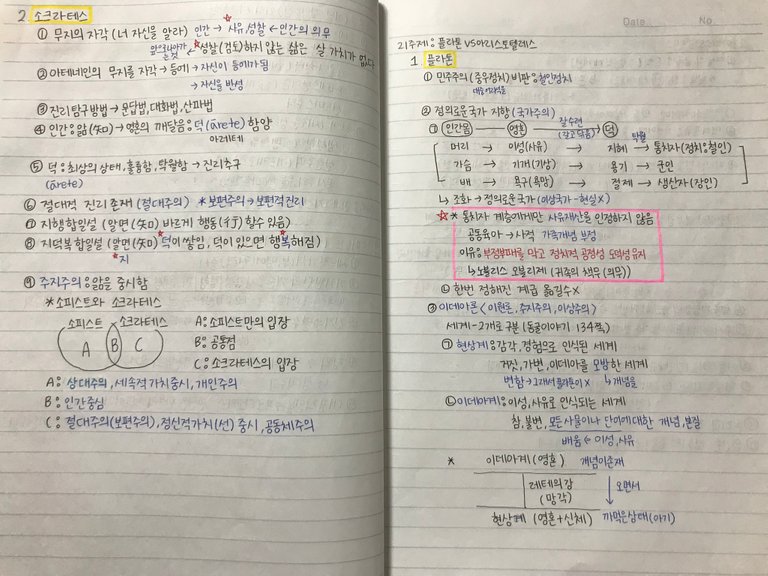 2. 소크라테스
① 무지의 자각 (너 자신을 알라) 인간 → 사유, 성찰 ← 인간의 의무
성찰(검토)하지 않는 삶은 살 가치가 없다
② 아테네인의 무지를 자각 → 등에 → 자신이 등에가 됨
→ 자신을 반성
③ 진리탐구방법 → 문답법, 대화법, 산파법
④ 인간: 앎(知) → 영혼의 깨달음: 덕(ārete) 함양
아레테
⑤ 덕: 최상의 상태, 훌륭함, 탁월함 → 진리추구
(ārete)
⑥ 절대적 진리 존재 (절대주의) * 보편주의 → 보편적진리
⑦ 지행합일설 (알면(知) 바르게 행동(行) 할수 있음)
⑧ 지덕복합일설 (알면(知) 덕이 쌓임, 덕이 있으면 행복해짐)
지
⑨ 주지주의: 앎을 중시함
* 소피스트와 소크라테스
소피스트 소크라테스
A B C
A: 소피스트만의 입장
B: 공통점
C: 소크라테스의 입장
A: 상대주의, 세속적가치중시, 개인주의
B: 인간중심
C: 절대주의(보편주의), 정신적가치(선) 중시, 공동체주의
Date No
2] 주제: 플라톤 VS 아리스토텔레스
1. 플라톤
① 민주주의(중우정치) 비판: 철인정치
② 정의로운국가 지향 (국가주의)
㉠ 인간몸 영혼 잘수련 (갈고닦음) 덕
탁월
머리 → 이성(사유) → 지혜 → 통치자(정치: 철인)
가슴 → 기개(기상) → 용기 → 군인
배 → 욕구(욕망) → 절제 → 생산자(장인)
↳ 조화 → 정의로운국가 (이상국가-현실X)
* 통치자 계층에게만 사유재산을 인정하지 않음
공동육아 → 사적 가족개념 부정
이유: 부정부패를 막고 정치적 공정성 도덕성 유지
↳ 노블리스 오블리제 (귀족의 책무(의무))
㉡ 한번 정해진 계급 옮길수X
③ 이데아론 (이원론, 주지주의, 이상주의)
세계-2개로 구분 (동굴이야기 134쪽)
㉠ 현상계: 감각, 경험으로 인식된 세계
거짓, 가변, 이데아를 모방한 세계
변함 → 그래서 플라톤이 X ↳ 개념을
㉡ 이데아계: 이성, 사유로 인식되는 세계
참, 불변, 모든 사물이나 단어에 대한 개념, 본질
배움 ← 이성, 사유
* 이데아계 (영혼) 개념이 존재
레테의 강 오면서
(망각)
현상계 (영혼+신체) 까먹은상태(아기)